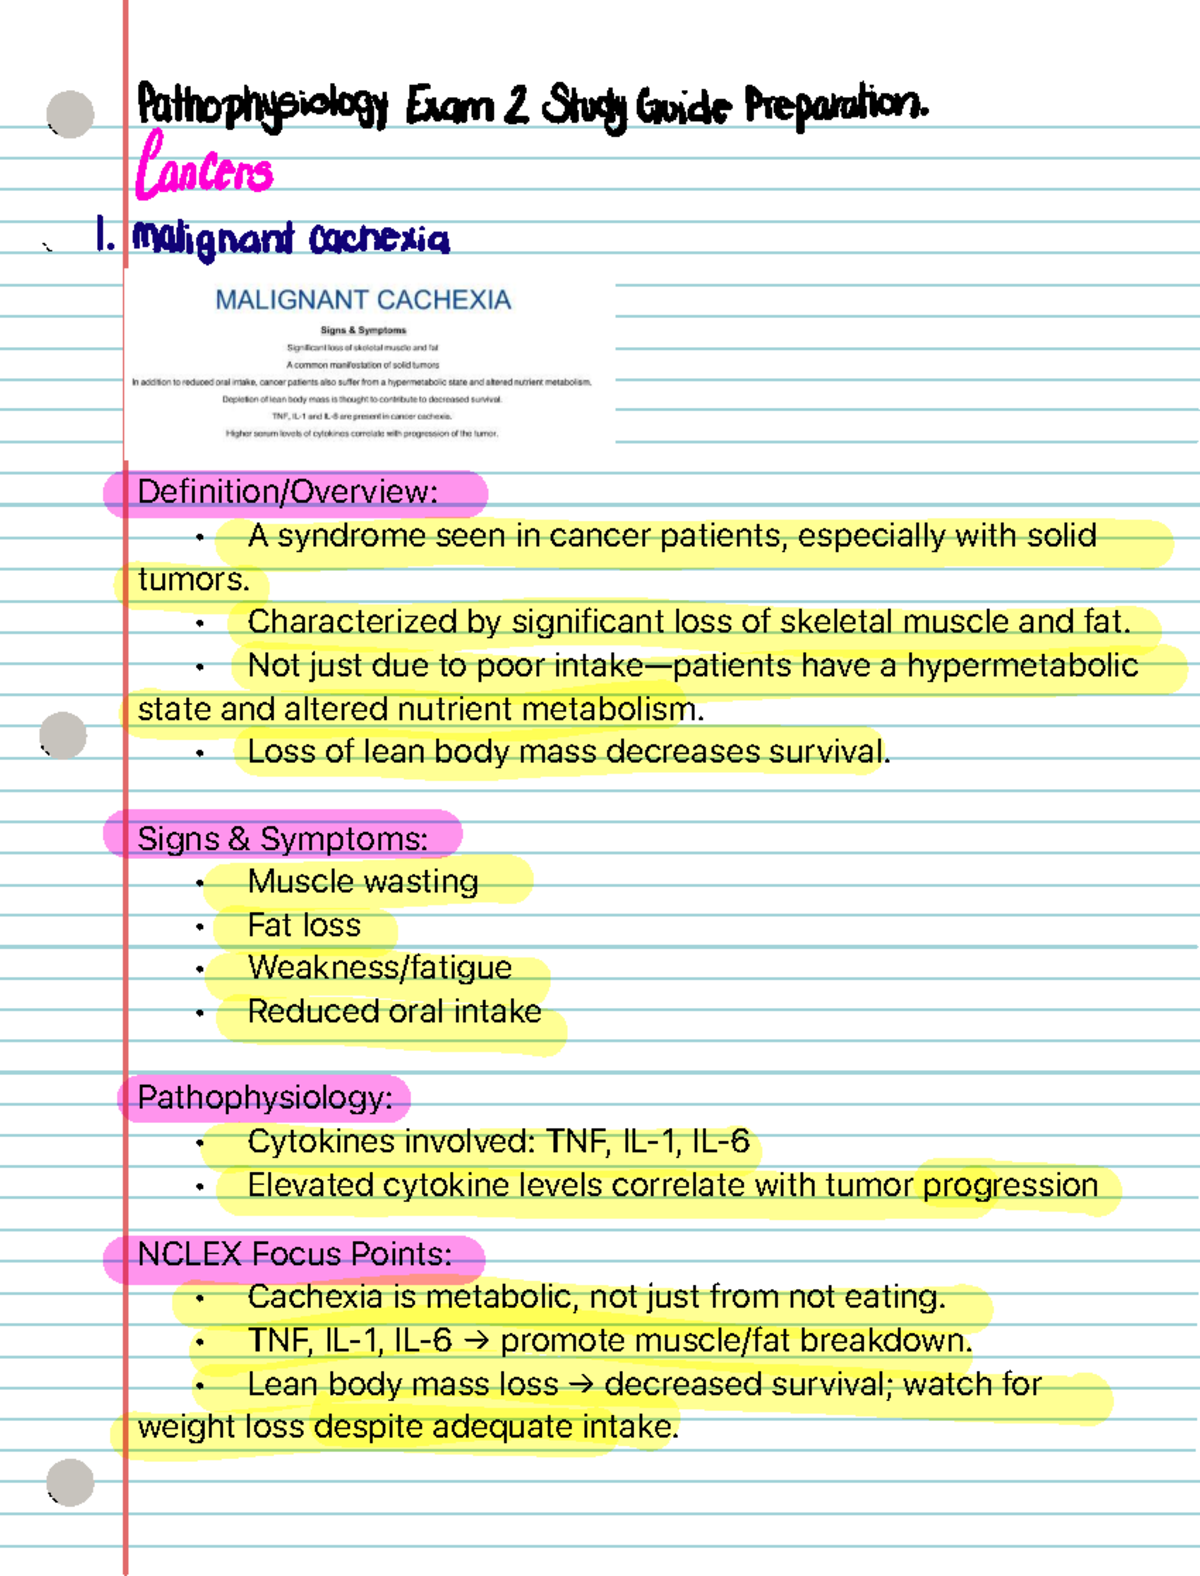 Pathophysiology Exam 2 Study Guide Preparation.
Cancers
1. malignant cachexia
MALIGNANT CACHEXIA
Signs & Symptoms
Significant loss of skeletal muscle and fat
A common manifestation of solid tumors
In addition to reduced oral intake, cancer patients also suffer from a hypermetabolic state and altered nutrient metabolism.
Depletion of lean body mass is thought to contribute to decreased survival.
TNF, IL-1 and IL-6 are present in cancer cachexia.
Higher serum levels of cytokines correlate with progression of the tumor.
Definition/Overview:
• A syndrome seen in cancer patients, especially with solid
tumors.
• Characterized by significant loss of skeletal muscle and fat.
• Not just due to poor intake—patients have a hypermetabolic
state and altered nutrient metabolism.
• Loss of lean body mass decreases survival.
Signs & Symptoms:
• Muscle wasting
• Fat loss
• Weakness/fatigue
• Reduced oral intake
Pathophysiology:
• Cytokines involved: TNF, IL-1, IL-6
• Elevated cytokine levels correlate with tumor progression
NCLEX Focus Points:
• Cachexia is metabolic, not just from not eating.
• TNF, IL-1, IL-6 → promote muscle/fat breakdown.
• Lean body mass loss → decreased survival; watch for
weight loss despite adequate intake.